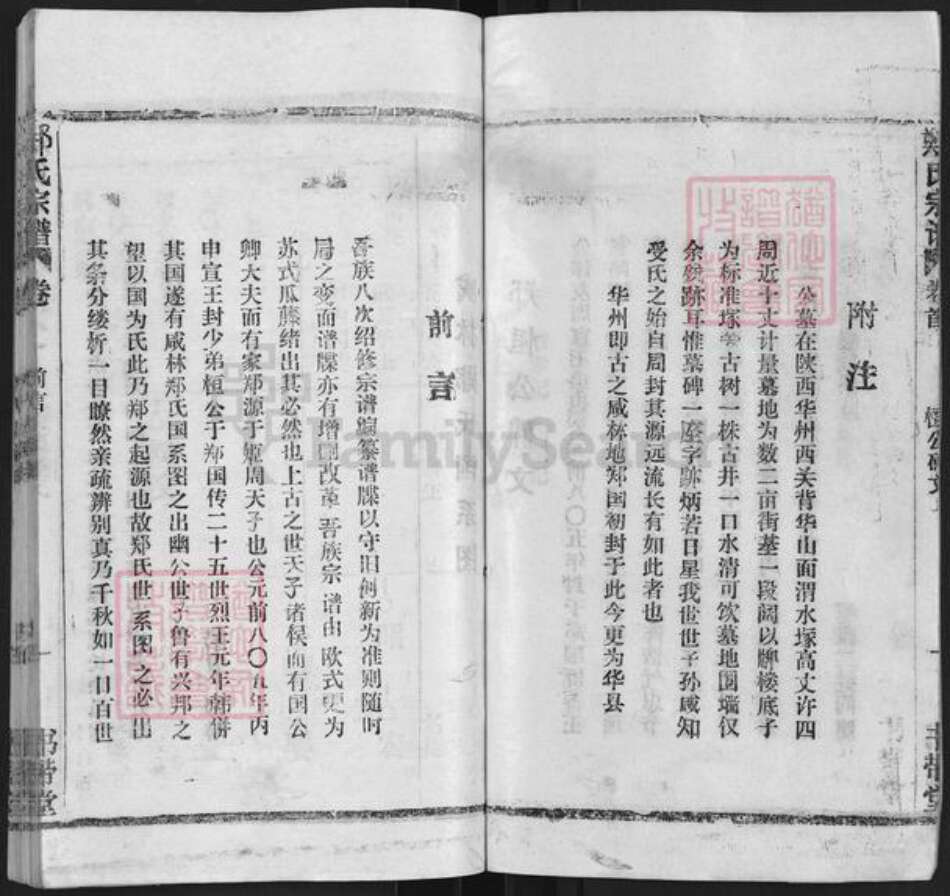 附注
公墓在陕西华州西关背华山面渭水塚高丈许四
周近十丈计量墓地为数二亩街基一段阔以牌楼底子
为标准塚旁古树一株古井一口水清可饮墓地围墙仅
余城跡耳惟墓碑一座字跡炳若日星我世世子孙咸知
受氏之始自周封其源远流长有如此者也
华州即古之咸林地郑国初封于此今更为华县
前言
吾族八次绍修宗谱编纂谱牒以守旧创新为准则随时
局之变而谱牒亦有增删改革吾族宗谱由欧式更为
苏式瓜藤绪出其必然也上古之世天子诸候而有国公
卿大夫而有家郑源于姬周天子也公元前八〇五年丙
申宣王封少弟桓公于郑国传二十五世烈王元年韩併
其国遂有咸林郑氏国系图之出幽公世子鲁有兴邦之
望以国为氏此乃郑之起源也故郑氏世系图之必出
其条分缕析一目瞭然亲疏辨别真乃千秋如一日百世
郑氏宗谱 卷首 桓公碑文 一 书带堂
郑氏宗谱 卷 前言 一 书带堂
FamilySearch